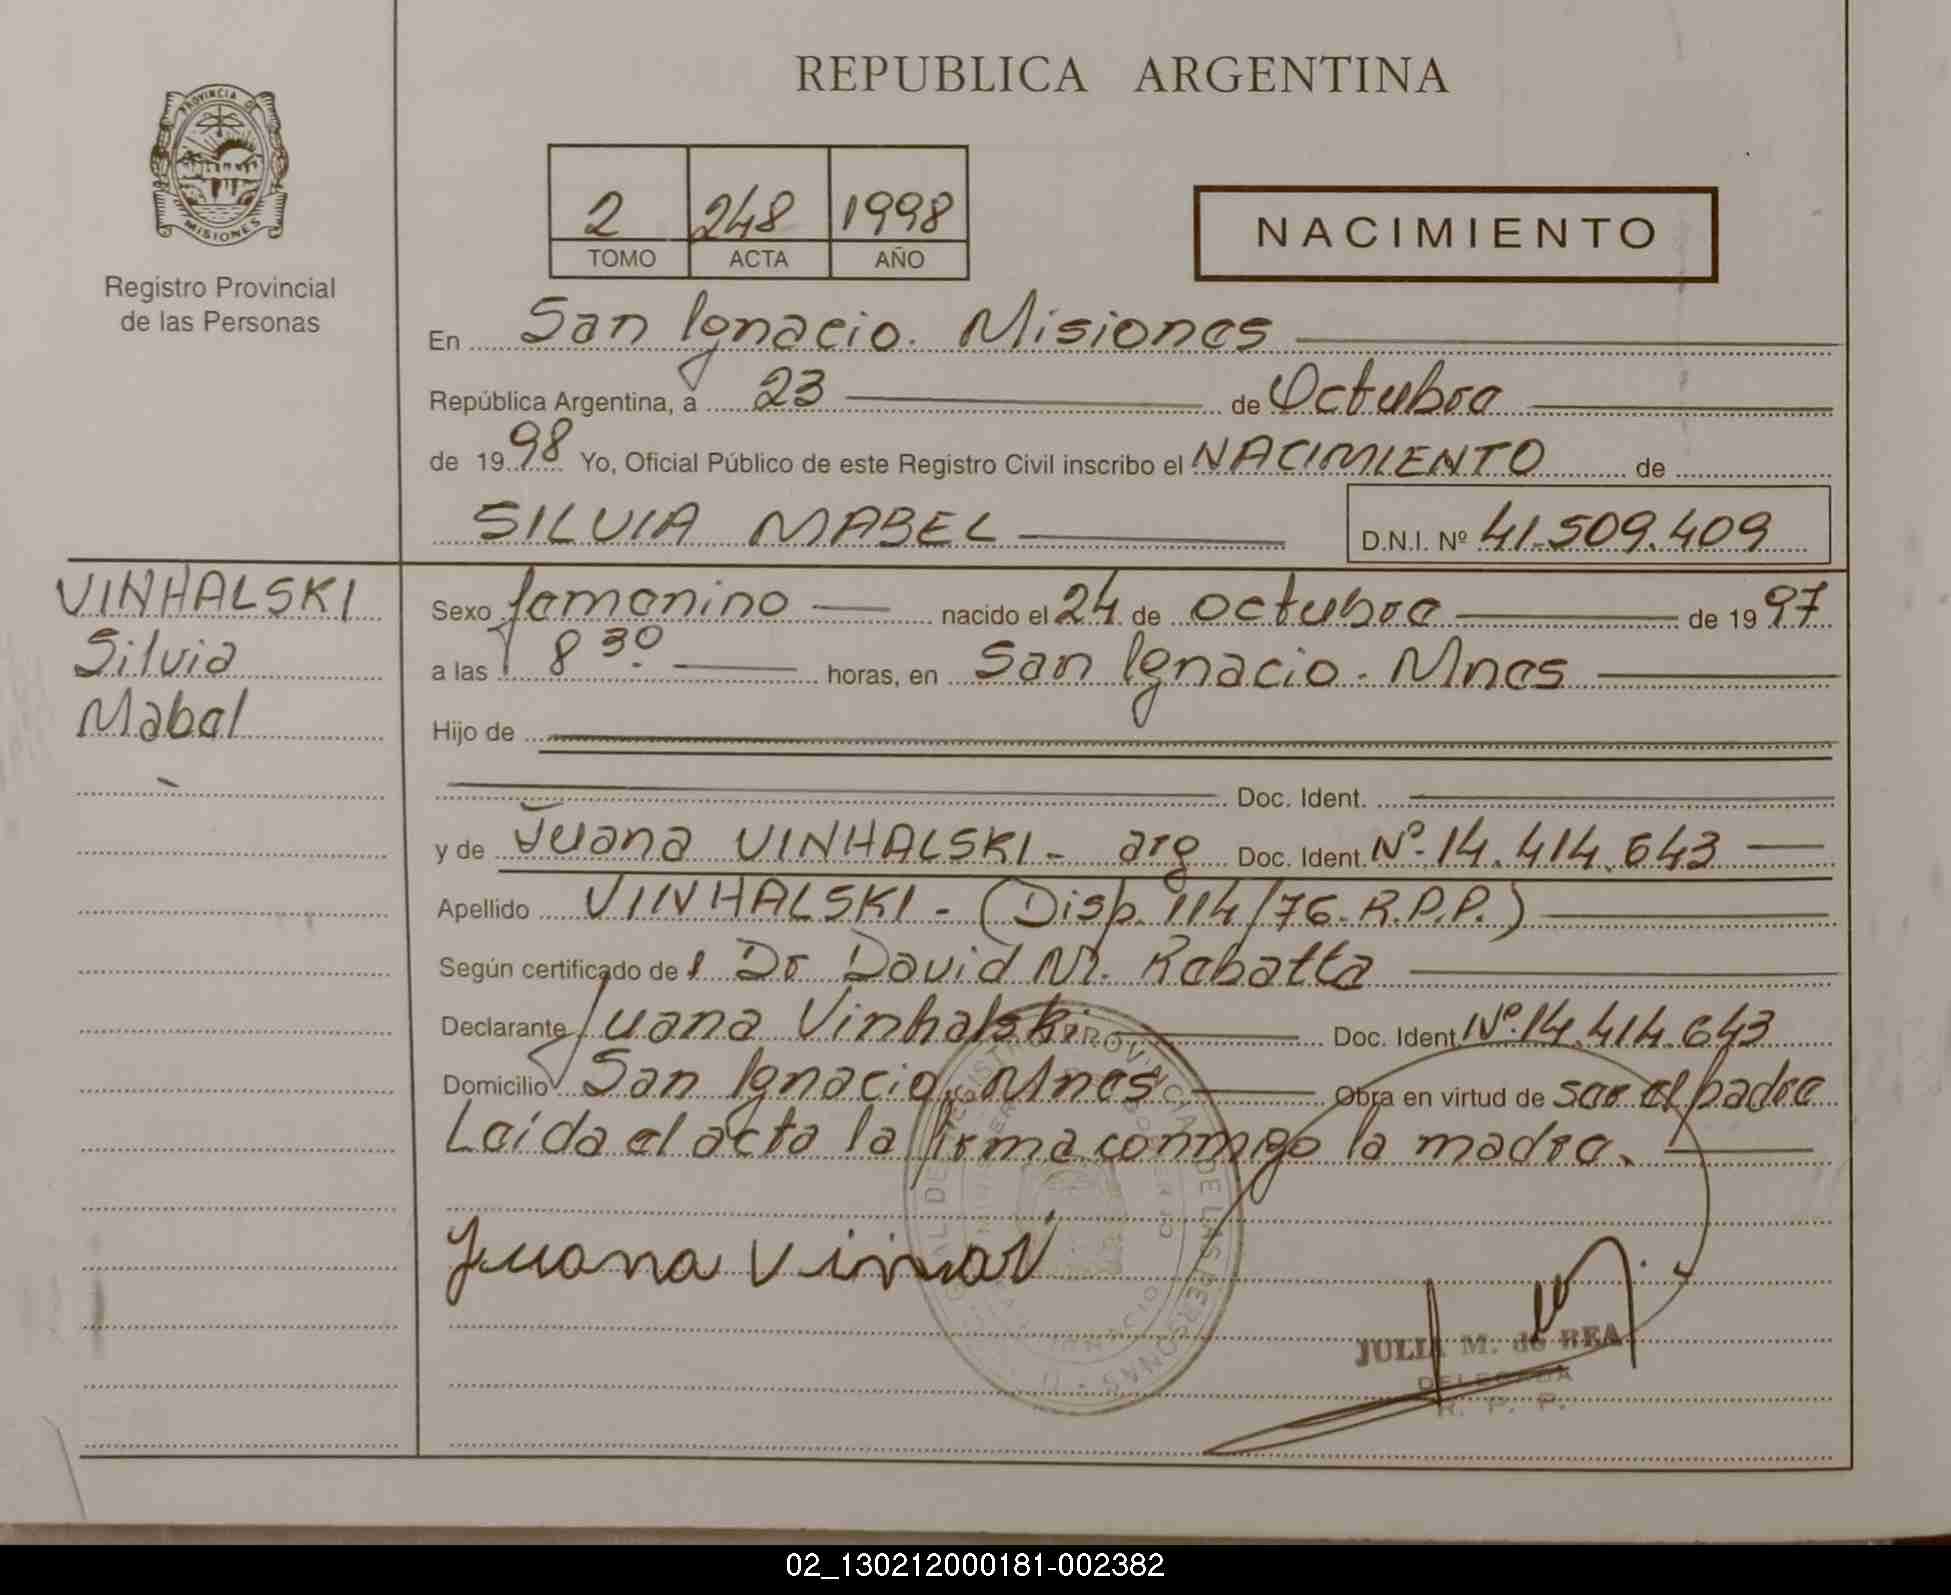 REPUBLICA ARGENTINA
PROVINCIA DE
MISIONES
Registro Provincial
de las Personas
2 248 1998
TOMO ACTA AÑO
NACIMIENTO
En San Ignacio. Misiones
República Argentina, a 23 de Octubre
de 1998 Yo, Oficial Público de este Registro Civil inscribo el NACIMIENTO de
SILVIA MABEL D.N.I. Nº 41.509.409
VINHALSKI
Silvia
Mabel
Sexo femenino nacido el 24 de octubre de 1997
a las 8 30. horas, en San Ignacio. Mnes
Hijo de
Doc. Ident.
y de Juana VINHALSKI - arg Doc. Ident. Nº 14.414.643
Apellido VINHALSKI - (Disp. 114/76. R.P.P.)
Según certificado del Dr David M. Rebatta
Declarante Juana Vinhalski Doc. Ident. Nº 14.414.643
Domicilio San Ignacio. Mnes Obra en virtud de ser el padre
Leída el acta la firma conmigo la madre.
Juana
JULIA M. de REA
DELEGADA
R. P. P.
REGISTRO PROVINCIAL DE LAS PERSONAS
02_130212000181-002382